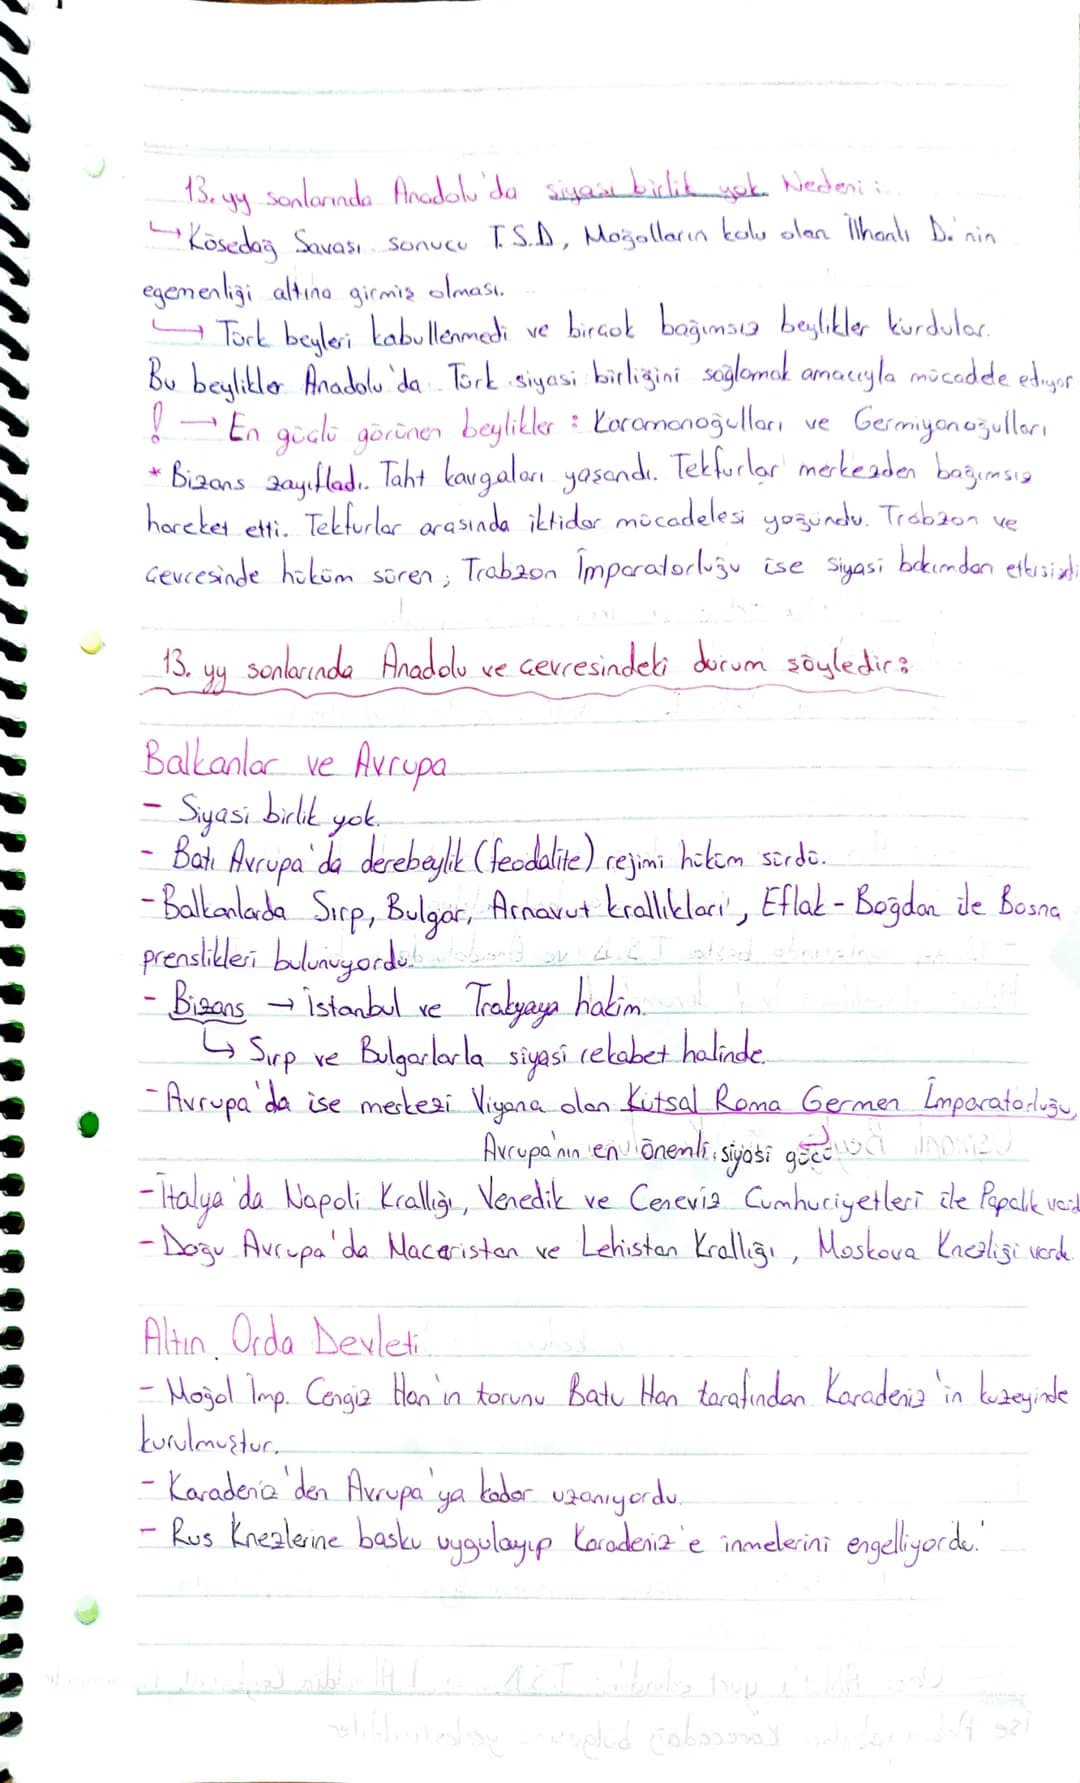 13. yy sonlarında Anadolu'da siyasi birlik yok. Nedeni :
↳ Kösedağ Savaşı sonucu T.S.D, Moğolların kolu olan İlhanlı D.'nin
egemenliği altına girmiş olması.
↳ Türk beyleri kabullenmedi ve birçok bağımsız beylikler kurdular.
Bu beylikler Anadolu'da Türk siyasi birliğini sağlamak amacıyla mücadele ediyor
! → En güçlü görünen beylikler : Karamanoğulları ve Germiyanoğulları
* Bizans zayıfladı. Taht kavgaları yaşandı. Tekfurlar merkezden bağımsız
hareket etti. Tekfurlar arasında iktidar mücadelesi yoğundu. Trabzon ve
çevresinde hüküm süren, Trabzon İmparatorluğu ise siyasi bakımdan etkisizdi
13. yy sonlarında Anadolu ve çevresindeki durum şöyledir :
Balkanlar ve Avrupa
- Siyasi birlik yok.
- Batı Avrupa'da derebeylik (feodalite) rejimi hüküm sürdü.
- Balkanlarda Sırp, Bulgar, Arnavut krallıkları, Eflak - Boğdan ile Bosna
prenslikleri bulunuyordu.
- Bizans → İstanbul ve Trakyaya hakim.
↳ Sırp ve Bulgarlarla siyasi rekabet halinde.
- Avrupa'da ise merkezi Viyana olan Kutsal Roma Germen İmparatorluğu,
Avrupa'nın en önemli siyasi gücü
- İtalya'da Napoli Krallığı, Venedik ve Ceneviz Cumhuriyetleri ile Papalık vardı
- Doğu Avrupa'da Macaristan ve Lehistan Krallığı, Moskova Knezliği vardı.
Altın Orda Devleti
- Moğol İmp. Cengiz Han'ın torunu Batu Han tarafından Karadeniz'in kuzeyinde
kurulmuştur.
- Karadeniz'den Avrupa'ya kadar uzanıyordu.
- Rus Knezlerine baskı uygulayıp Karadeniz'e inmelerini engelliyordu.